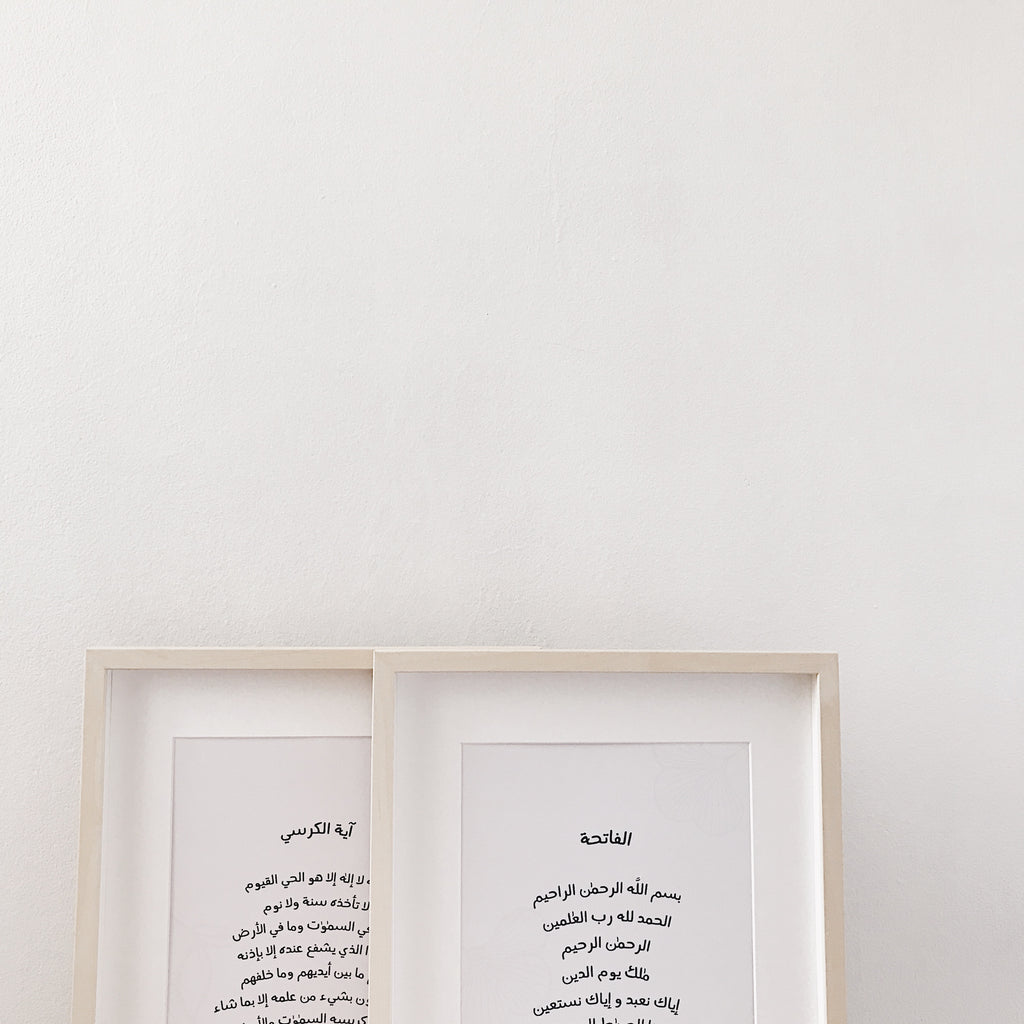 الفاتحة
بسم اللَّه الرحمٰن الراحيم
الحمد لله رب العٰلمين
الرحمٰن الرحيم
مٰلك يوم الدين
إياك نعبد و إياك نستعين
آية الكرسي
لا إله إلا هو الحي القيوم
لا تأخذه سنة ولا نوم
في السمٰوٰت وما في الأرض
الذي يشفع عنده إلا بإذنه
ما بين أيديهم وما خلفهم
بشيء من علمه إلا بما شاء
كرسيه السمٰوٰت